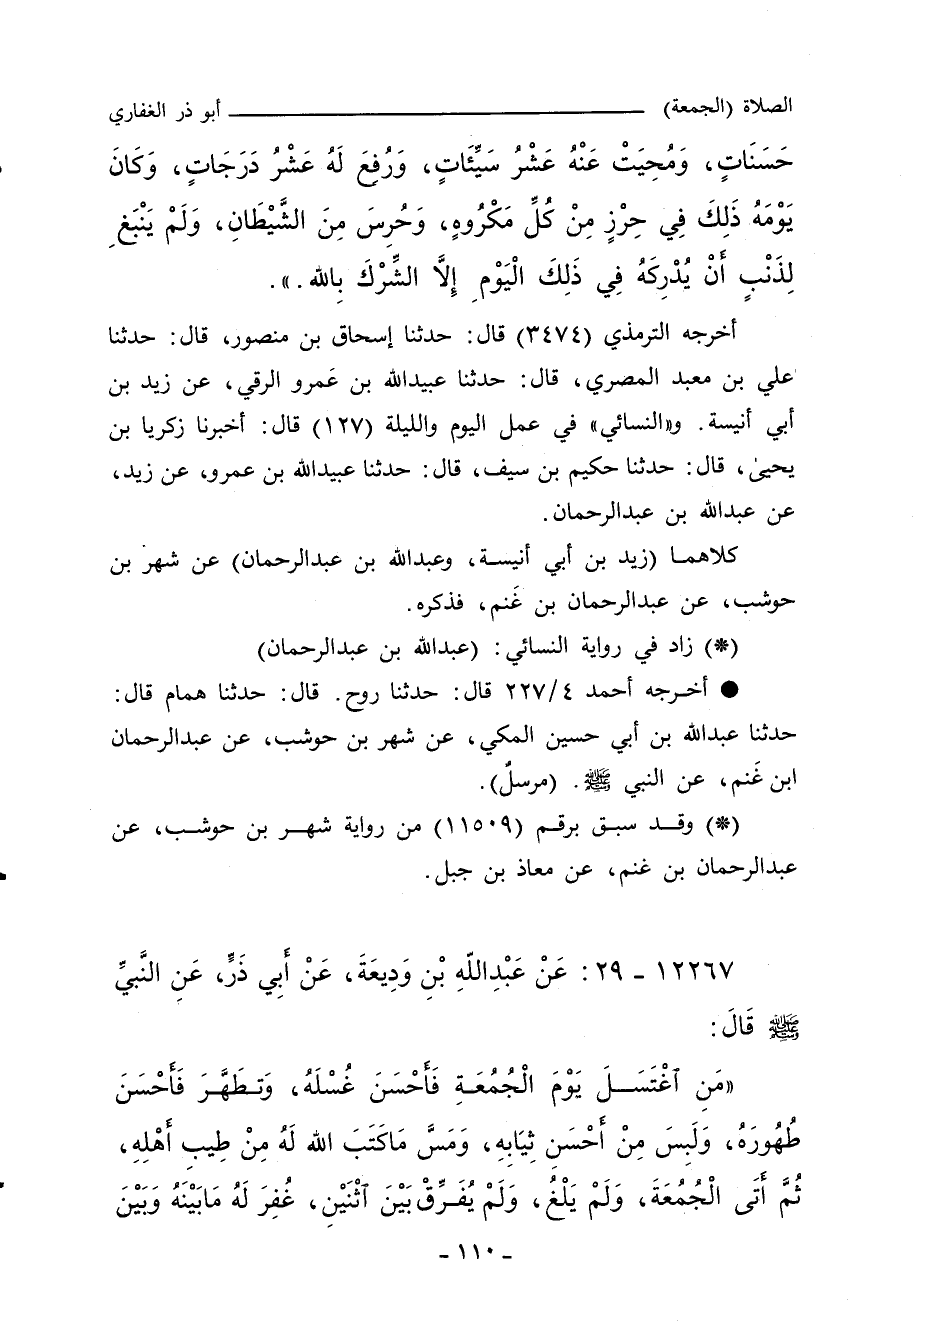 الصلاة (الجمعة) ــــــــــــــــ أبو ذر الغفاري
حَسَنَاتٍ، وَمُحِيَتْ عَنْهُ عَشْرُ سَيِّئَاتٍ، وَرُفِعَ لَهُ عَشْرُ دَرَجَاتٍ، وَكَانَ
يَوْمَهُ ذَلِكَ فِي حِرْزٍ مِنْ كُلِّ مَكْرُوهٍ، وَحُرِسَ مِنَ الشَّيْطَانِ، وَلَمْ يَنْبَغِ
لِذَنْبٍ أَنْ يُدْرِكَهُ فِي ذَلِكَ الْيَوْمِ إِلَّا الشِّرْكَ بِاللهِ.».
أخرجه الترمذي (٣٤٧٤) قال: حدثنا إسحاق بن منصور، قال: حدثنا
علي بن معبد المصري، قال: حدثنا عبيدالله بن عَمرو الرقي، عن زيد بن
أبي أنيسة. و«النسائي» في عمل اليوم والليلة (١٢٧) قال: أخبرنا زكريا بن
يحيىٰ، قال: حدثنا حكيم بن سيف، قال: حدثنا عبيدالله بن عمرو، عن زيد،
عن عبدالله بن عبدالرحمان.
كلاهما (زيد بن أبي أنيسة، وعبدالله بن عبدالرحمان) عن شهر بن
حوشب، عن عبدالرحمان بن غَنم، فذكره.
(*) زاد في رواية النسائي: (عبدالله بن عبدالرحمان)
● أخرجه أحمد ٢٢٧/٤ قال: حدثنا روح. قال: حدثنا همام قال:
حدثنا عبدالله بن أبي حسين المكي، عن شهر بن حوشب، عن عبدالرحمان
ابن غَنم، عن النبي ﷺ. (مرسلٌ).
(*) وقد سبق برقم (١١٥٠٩) من رواية شهر بن حوشب، عن
عبدالرحمان بن غنم، عن معاذ بن جبل.
١٢٢٦٧ - ٢٩: عَنْ عَبْدِاللّهِ بْنِ وَدِيعَةَ، عَنْ أَبِي ذَرٍّ، عَنِ النَّبِيِّ
ﷺ قَالَ:
«مَنِ ٱغْتَسَلَ يَوْمَ الْجُمُعَةِ فَأَحْسَنَ غُسْلَهُ، وَتطَهَّرَ فَأَحْسَنَ
طُهُورَهُ، وَلَبِسَ مِنْ أَحْسَنِ ثِيَابِهِ، وَمَسَّ مَاكَتَبَ الله لَهُ مِنْ طِيبِ أَهْلِهِ،
ثُمَّ أَتَى الْجُمُعَةَ، وَلَمْ يَلْغُ، وَلَمْ يُفَرِّقْ بَيْنَ ٱثْنَيْنِ، غُفِرَ لَهُ مَابَيْنَهُ وَبَيْنَ
- ١١٠ -